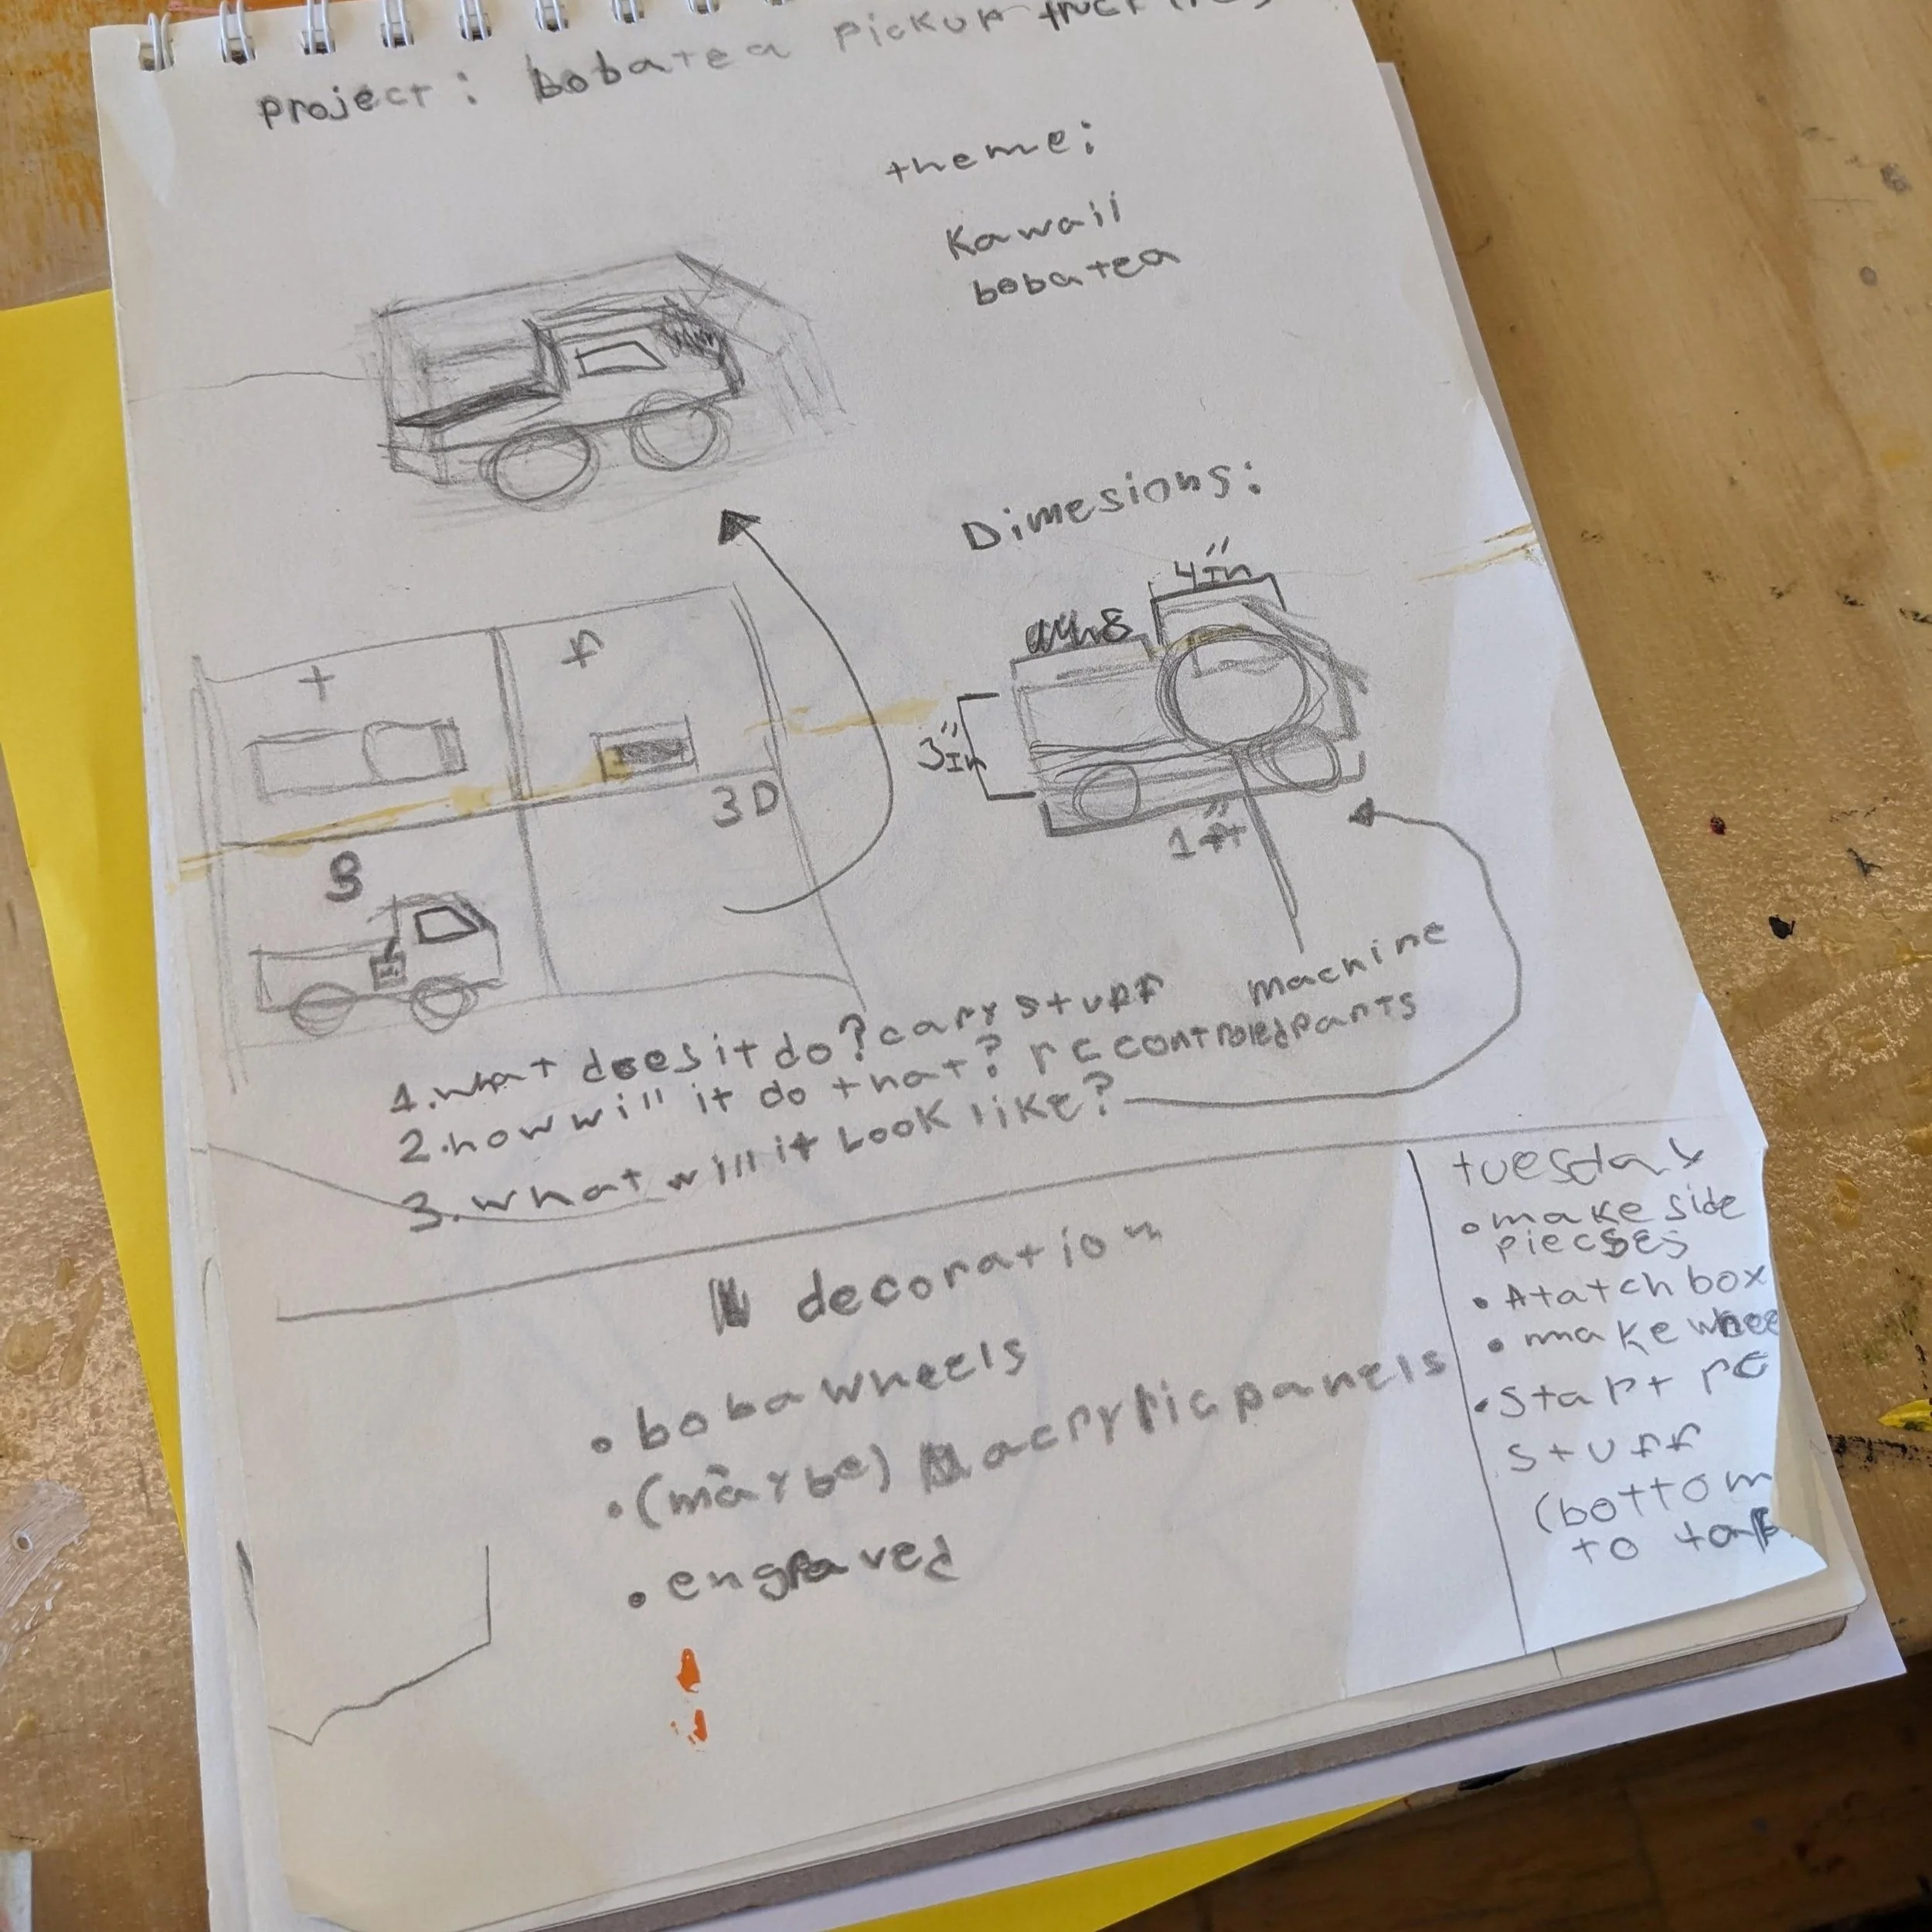 project: bobatea pickup truck
theme:
Kawaii
bobatea
Dimesions:
4in"
8
3in"
1ft"
t
f
3D
S
machine
1. what does it do? cary stuff
2. how will it do that? rc controled parts
3. what will it look like?
decoration
• boba wheels
• (maybe) acrylic panels
• engraved
tuesday
• make side
piecses
• Atatch box
• make whee
• start rc
stuff
(bottom
to top